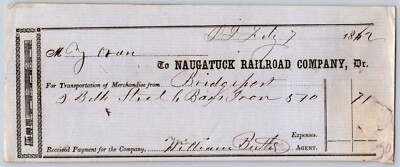 July 7 1862
M
To NAUGATUCK RAILROAD COMPANY, Dr.
For Transportation of Merchandise from Bridgeport
2 Bdls Steel 6 Bars Iron 510 71
Expenses.
Received Payment for the Company, William AGENT.